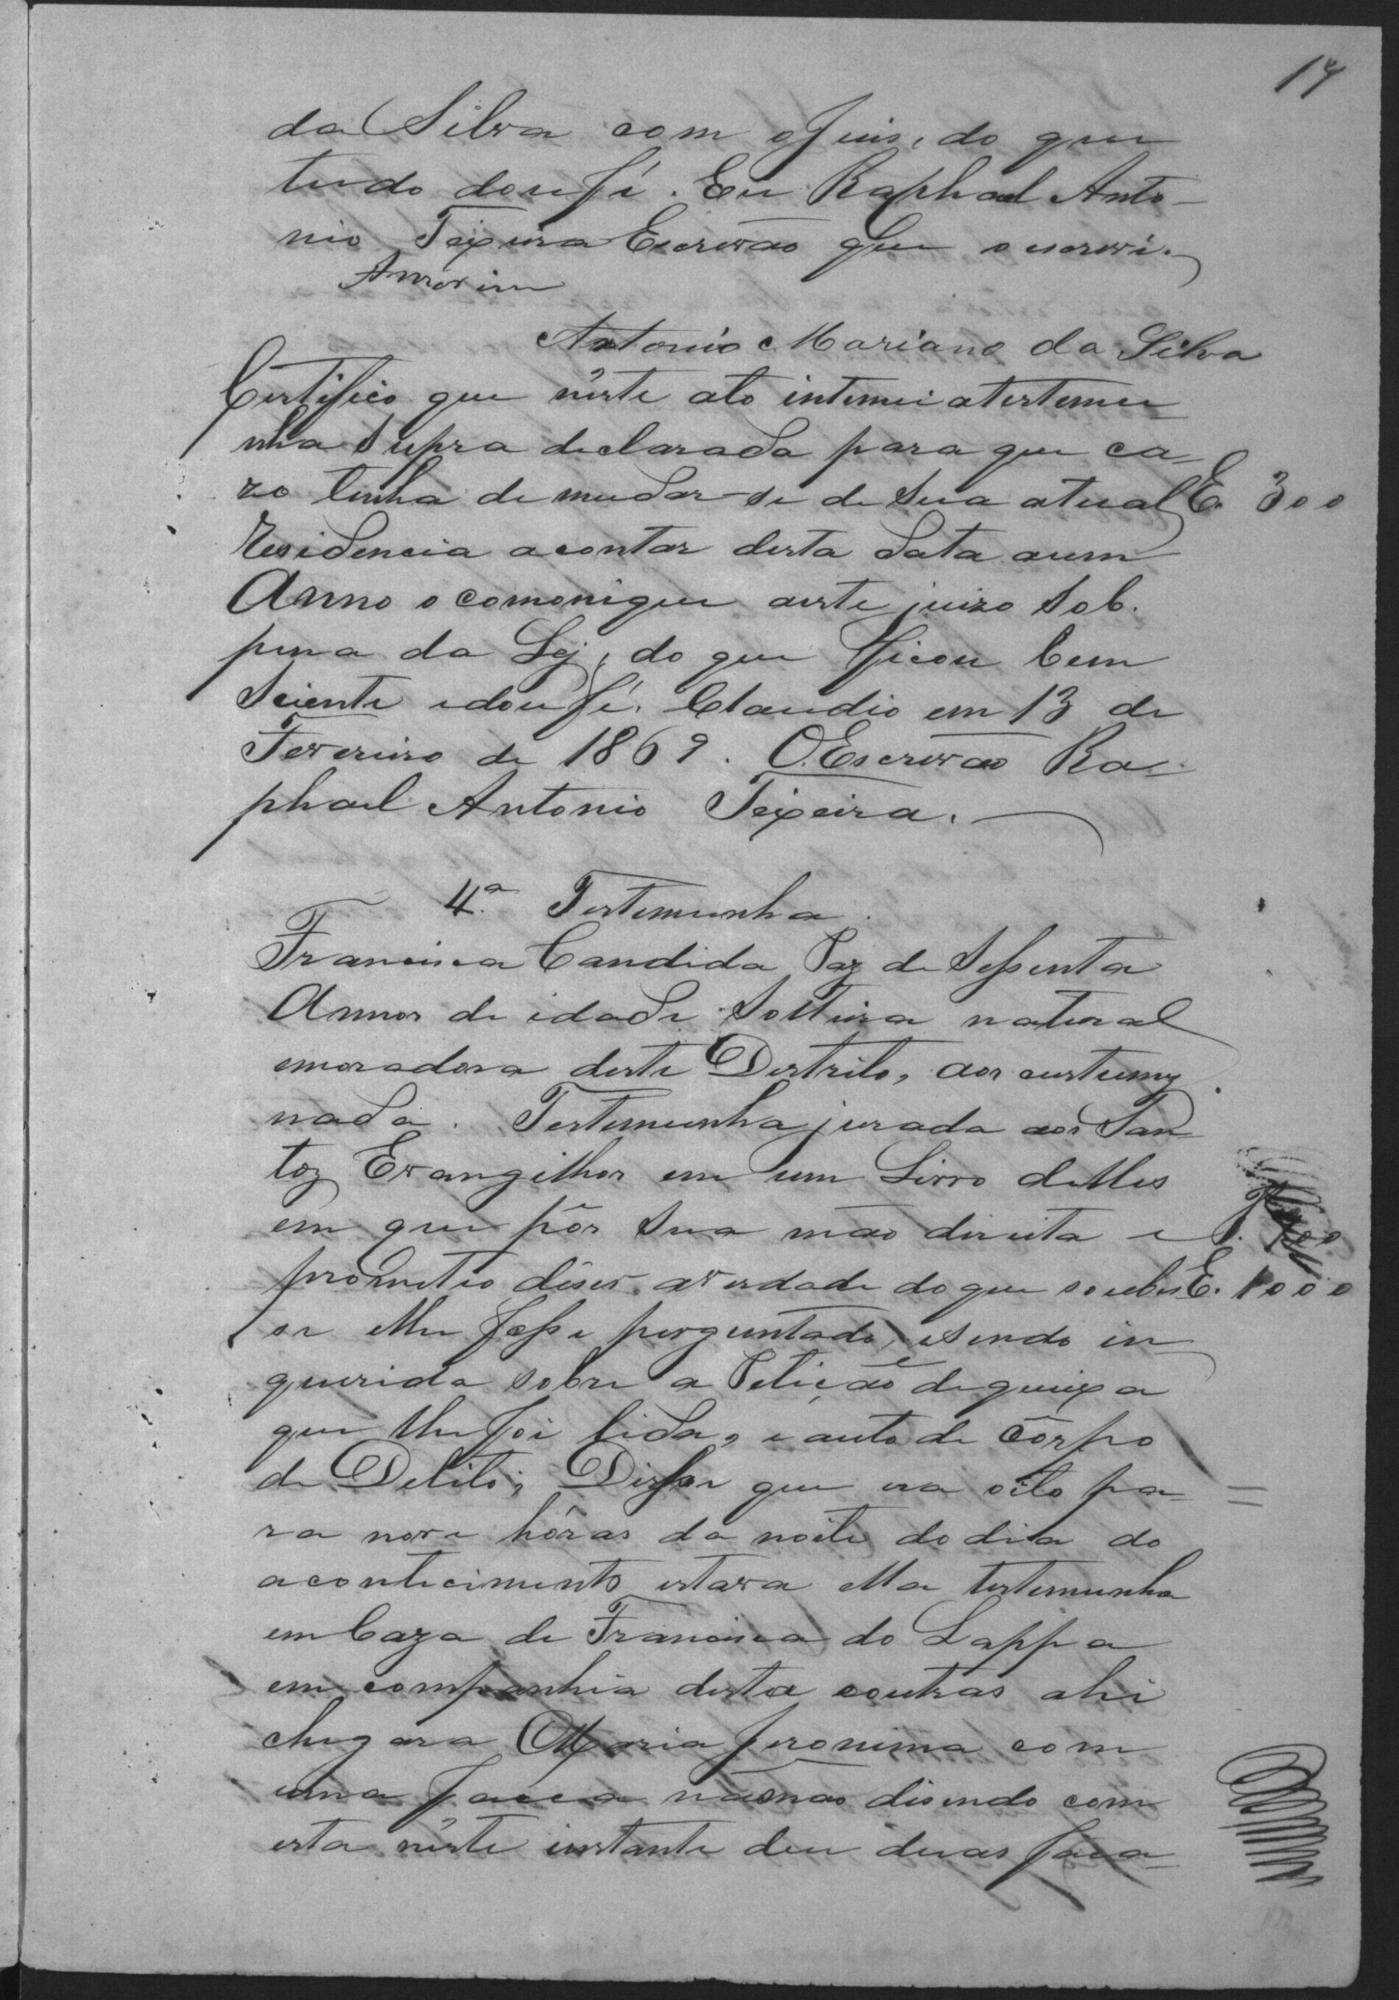 17
da Silva com o Juis, do que
tudo dou fé. Eu Raphael Anto-
nio Teixeira Escrivão que o escrevi.
Amorim
Antonio Mariano da Silva
Certifico que nêste ato intemei atestemu
nha supra declarada para que ca-
zo tenha de mudar-se de sua atual
E. 300
Residencia a contar desta data aum
Anno o comonique aeste juizo sob.
pena da Lej, do que ficou bem
Sciente edou fé. Claudio em 13 de
Fevereiro de 1869. O Escrivão Ra-
phael Antonio Teixeira.
4.ª Testemunha
Francisca Candida Paz de Sessenta
Annos de idade Solteira natural
emoradora deste Destrito, aos custumes
nada. Testemunha jurada aos San
tos Evangelhos em um Livro delles
em que pôs sua mão direita e
prometeo diser averdade do que soubese
E. 1000
se lhe fosse perguntado, esendo in
querida sobre a Petição de queixa
que lhe foi lida, e auto de Côrpo
de Delito; Disse que era oito pa-
ra nove hóras da noite do dia do
acontecimento estava ella testemunha
em Caza de Francisca do Lappa
em companhia desta eoutras ahi
chegara Maria Jeronima com
uma facca na mão disendo com
esta nêste instante deu duas faca-